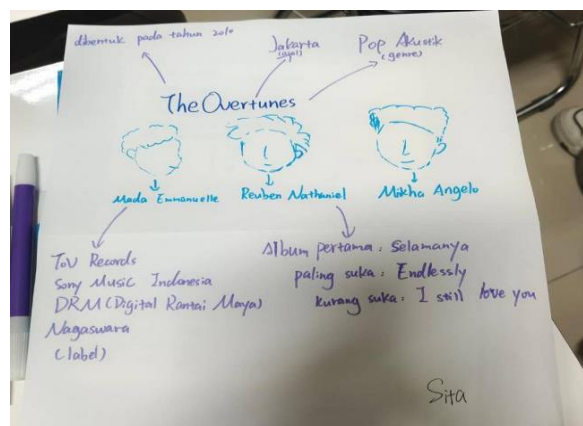 dibentuk pada tahun 2010
Jakarta
(asal)
Pop Akustik
(genre)
The Overtunes
Mada Emmanuelle
Reuben Nathaniel
Mikha Angelo
ToV Records
Sony Music Indonesia
DRM (Digital Rantai Maya)
Nagaswara
(label)
Album pertama : Selamanya
paling suka : Endlessly
kurang suka : I still love you
Sita